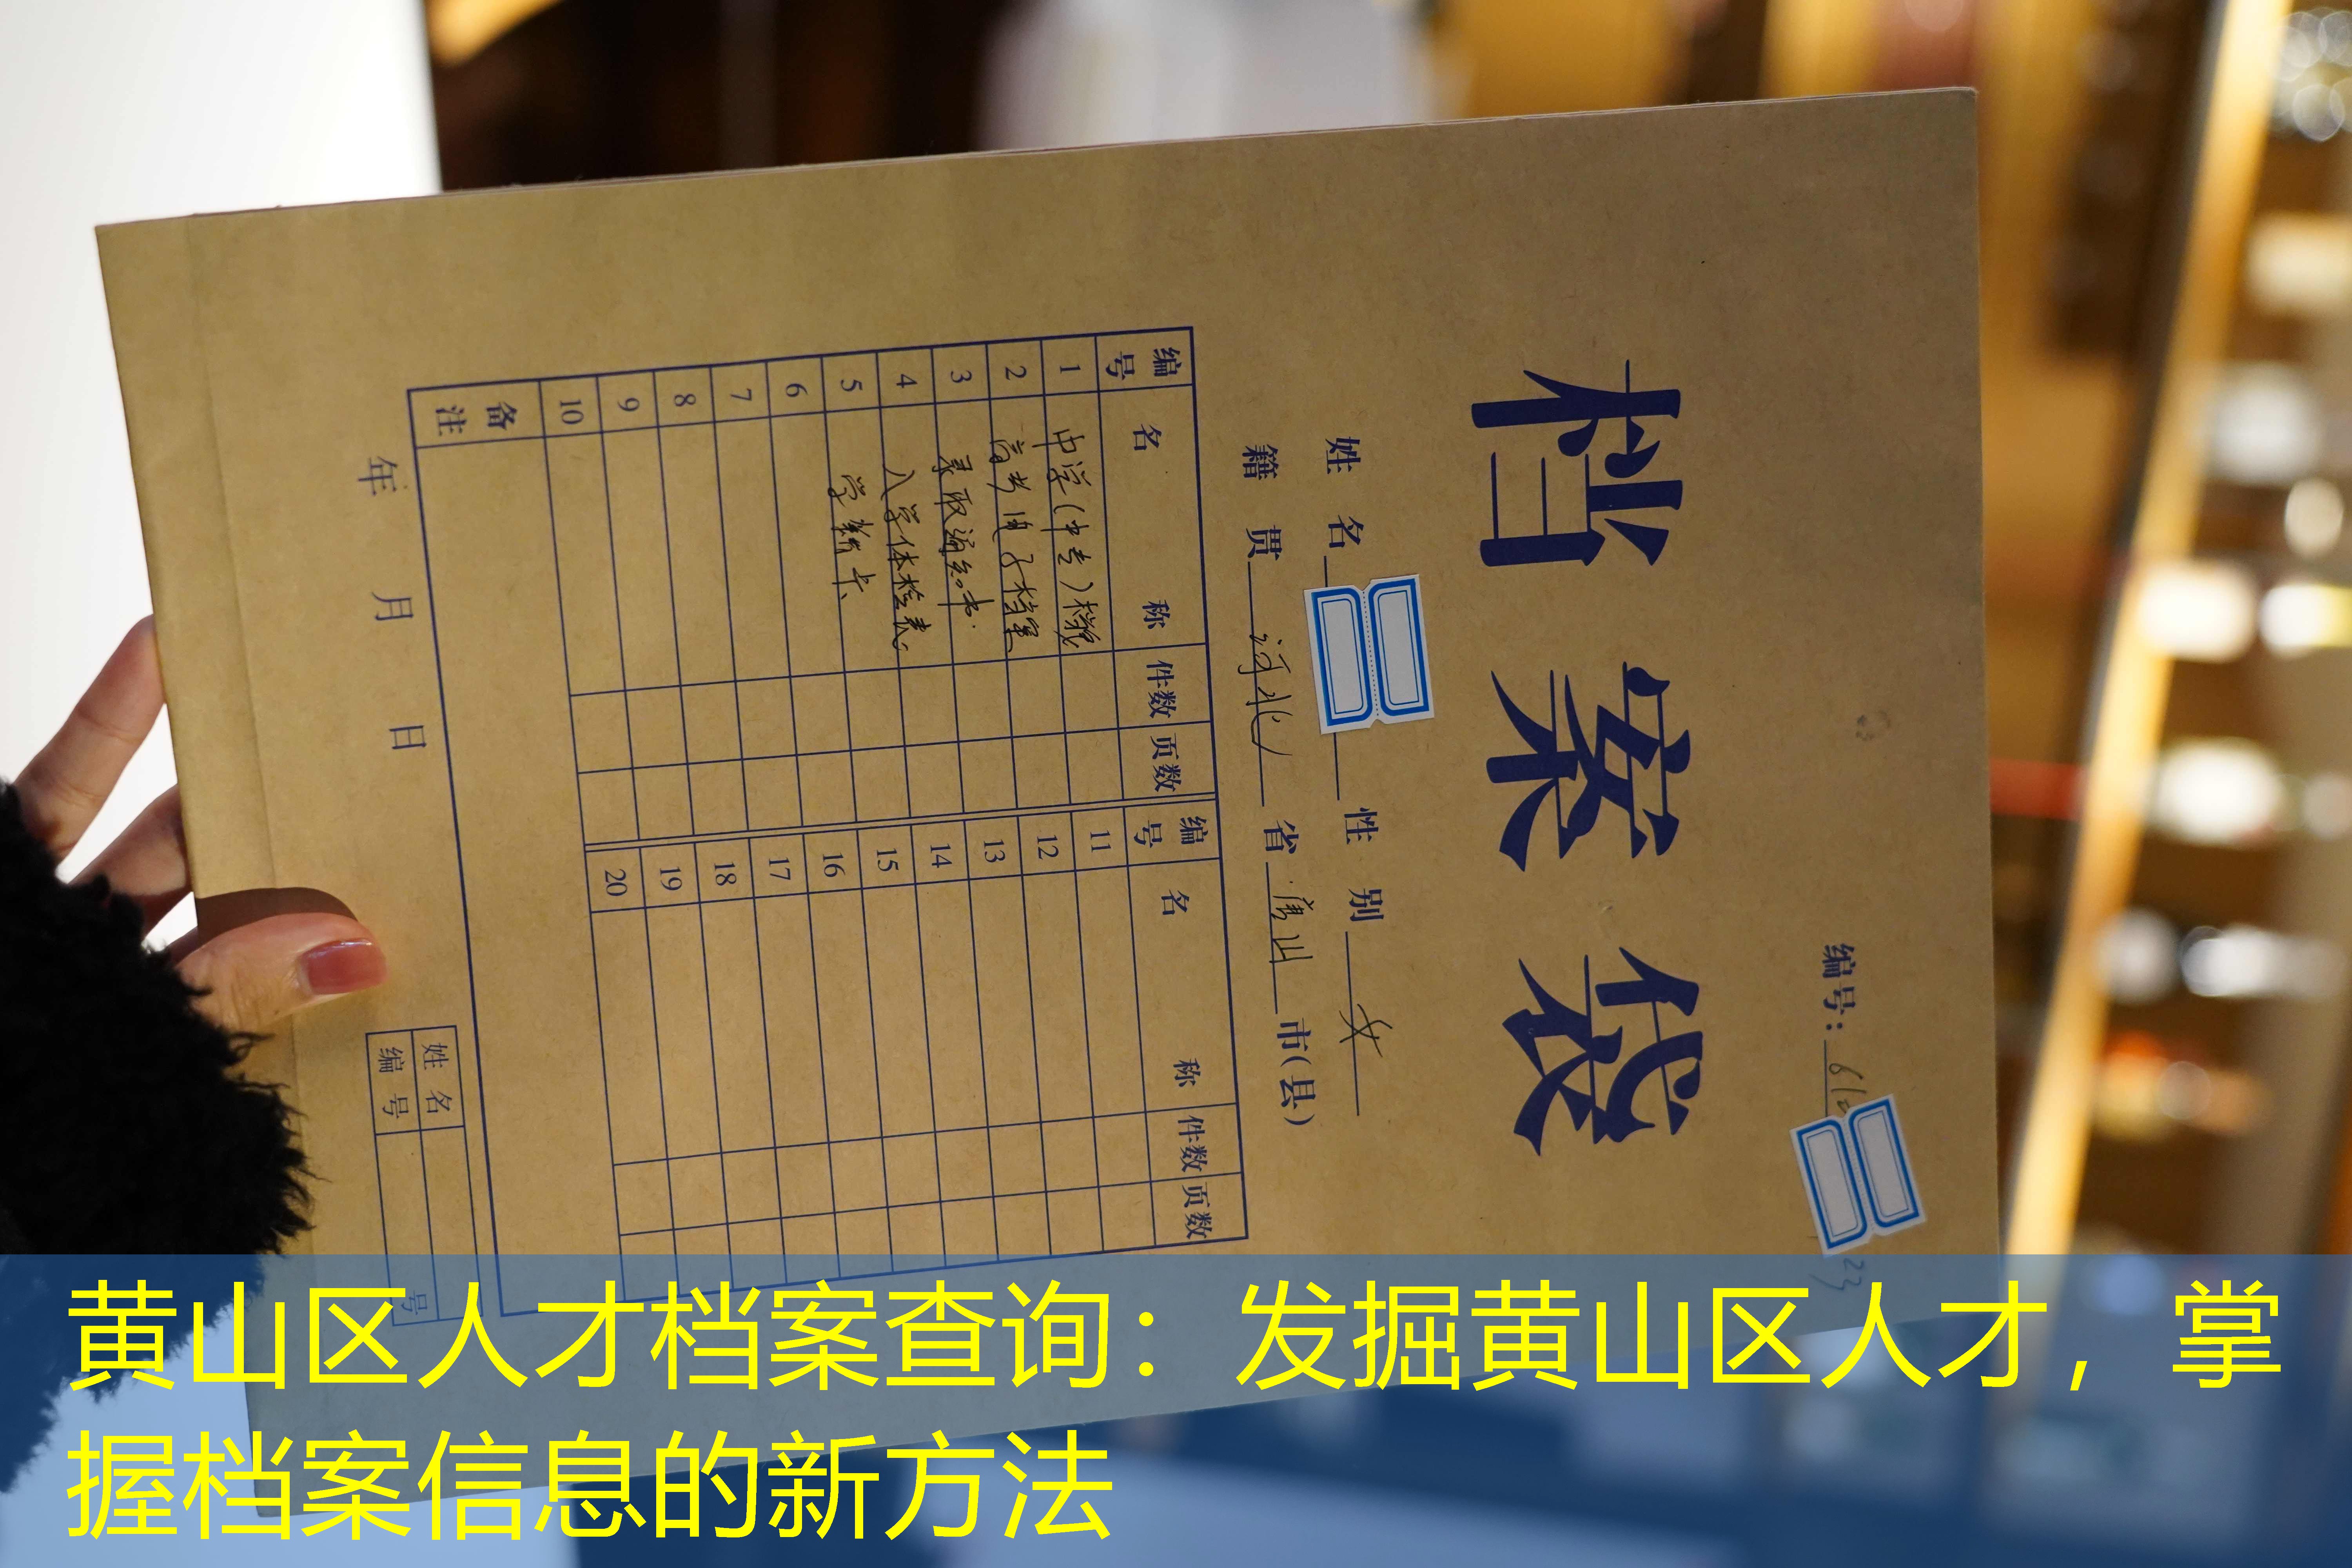 编号：
档案袋
姓名 性别 女
籍贯 河北 省 唐山 市(县)
编号 名称 件数 页数 编号 名称 件数 页数
1 中学(中专)档案 11
2 高考电子档案 12
3 录取通知书 13
4 入学体检表 14
5 学籍卡 15
6 16
7 17
8 18
9 19
10 20
备注
年 月 日
姓名
编号 号
黄山区人才档案查询：发掘黄山区人才，掌
握档案信息的新方法